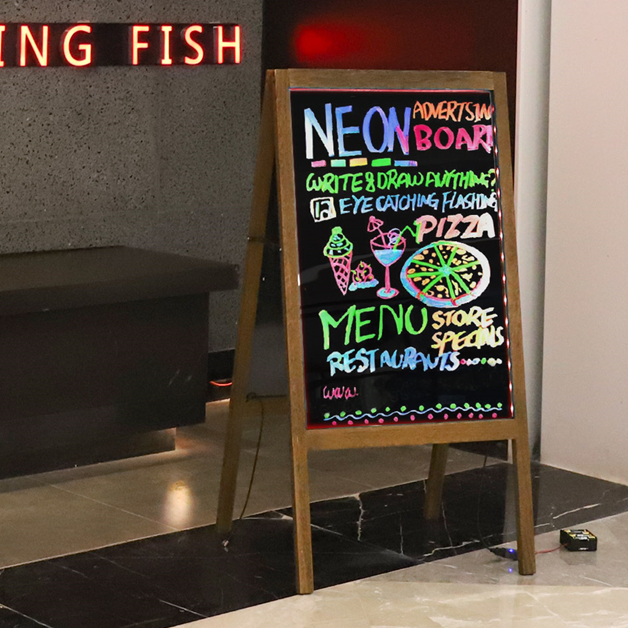 ING FISH
NEON
ADVERTSIN
BOARD
WRITE & DRAW ANYTHING?
EYE CATCHING FLASHING
PIZZA
MENU
STORE
SPECIALS
RESTAURANTS